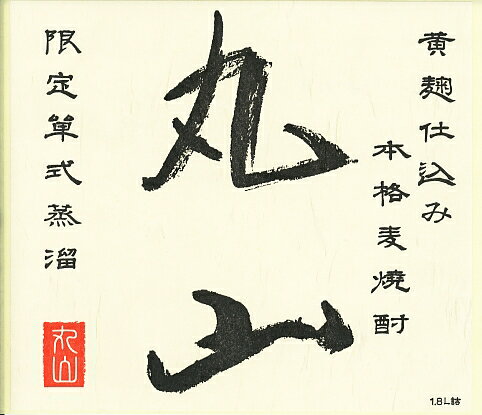 黄麹仕込み
本格麦焼酎
丸山
限定単式蒸溜
丸山
1.8L詰